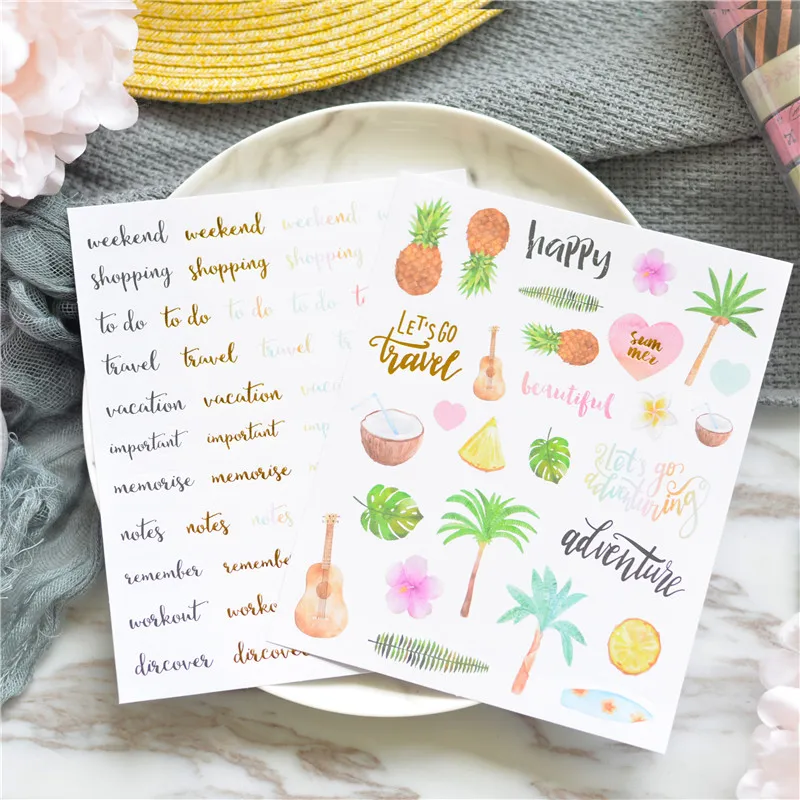 weekend weekend weekend w
shopping shopping shopping
to do to do to do to do t
travel travel travel
vacation vacation vaca
important important
memorise memorise
notes notes notes
remember remembe
workout worko
dircover dircove
happy
LET'S GO
travel
sum
mer
beautiful
Let's go
adventuring
adventure